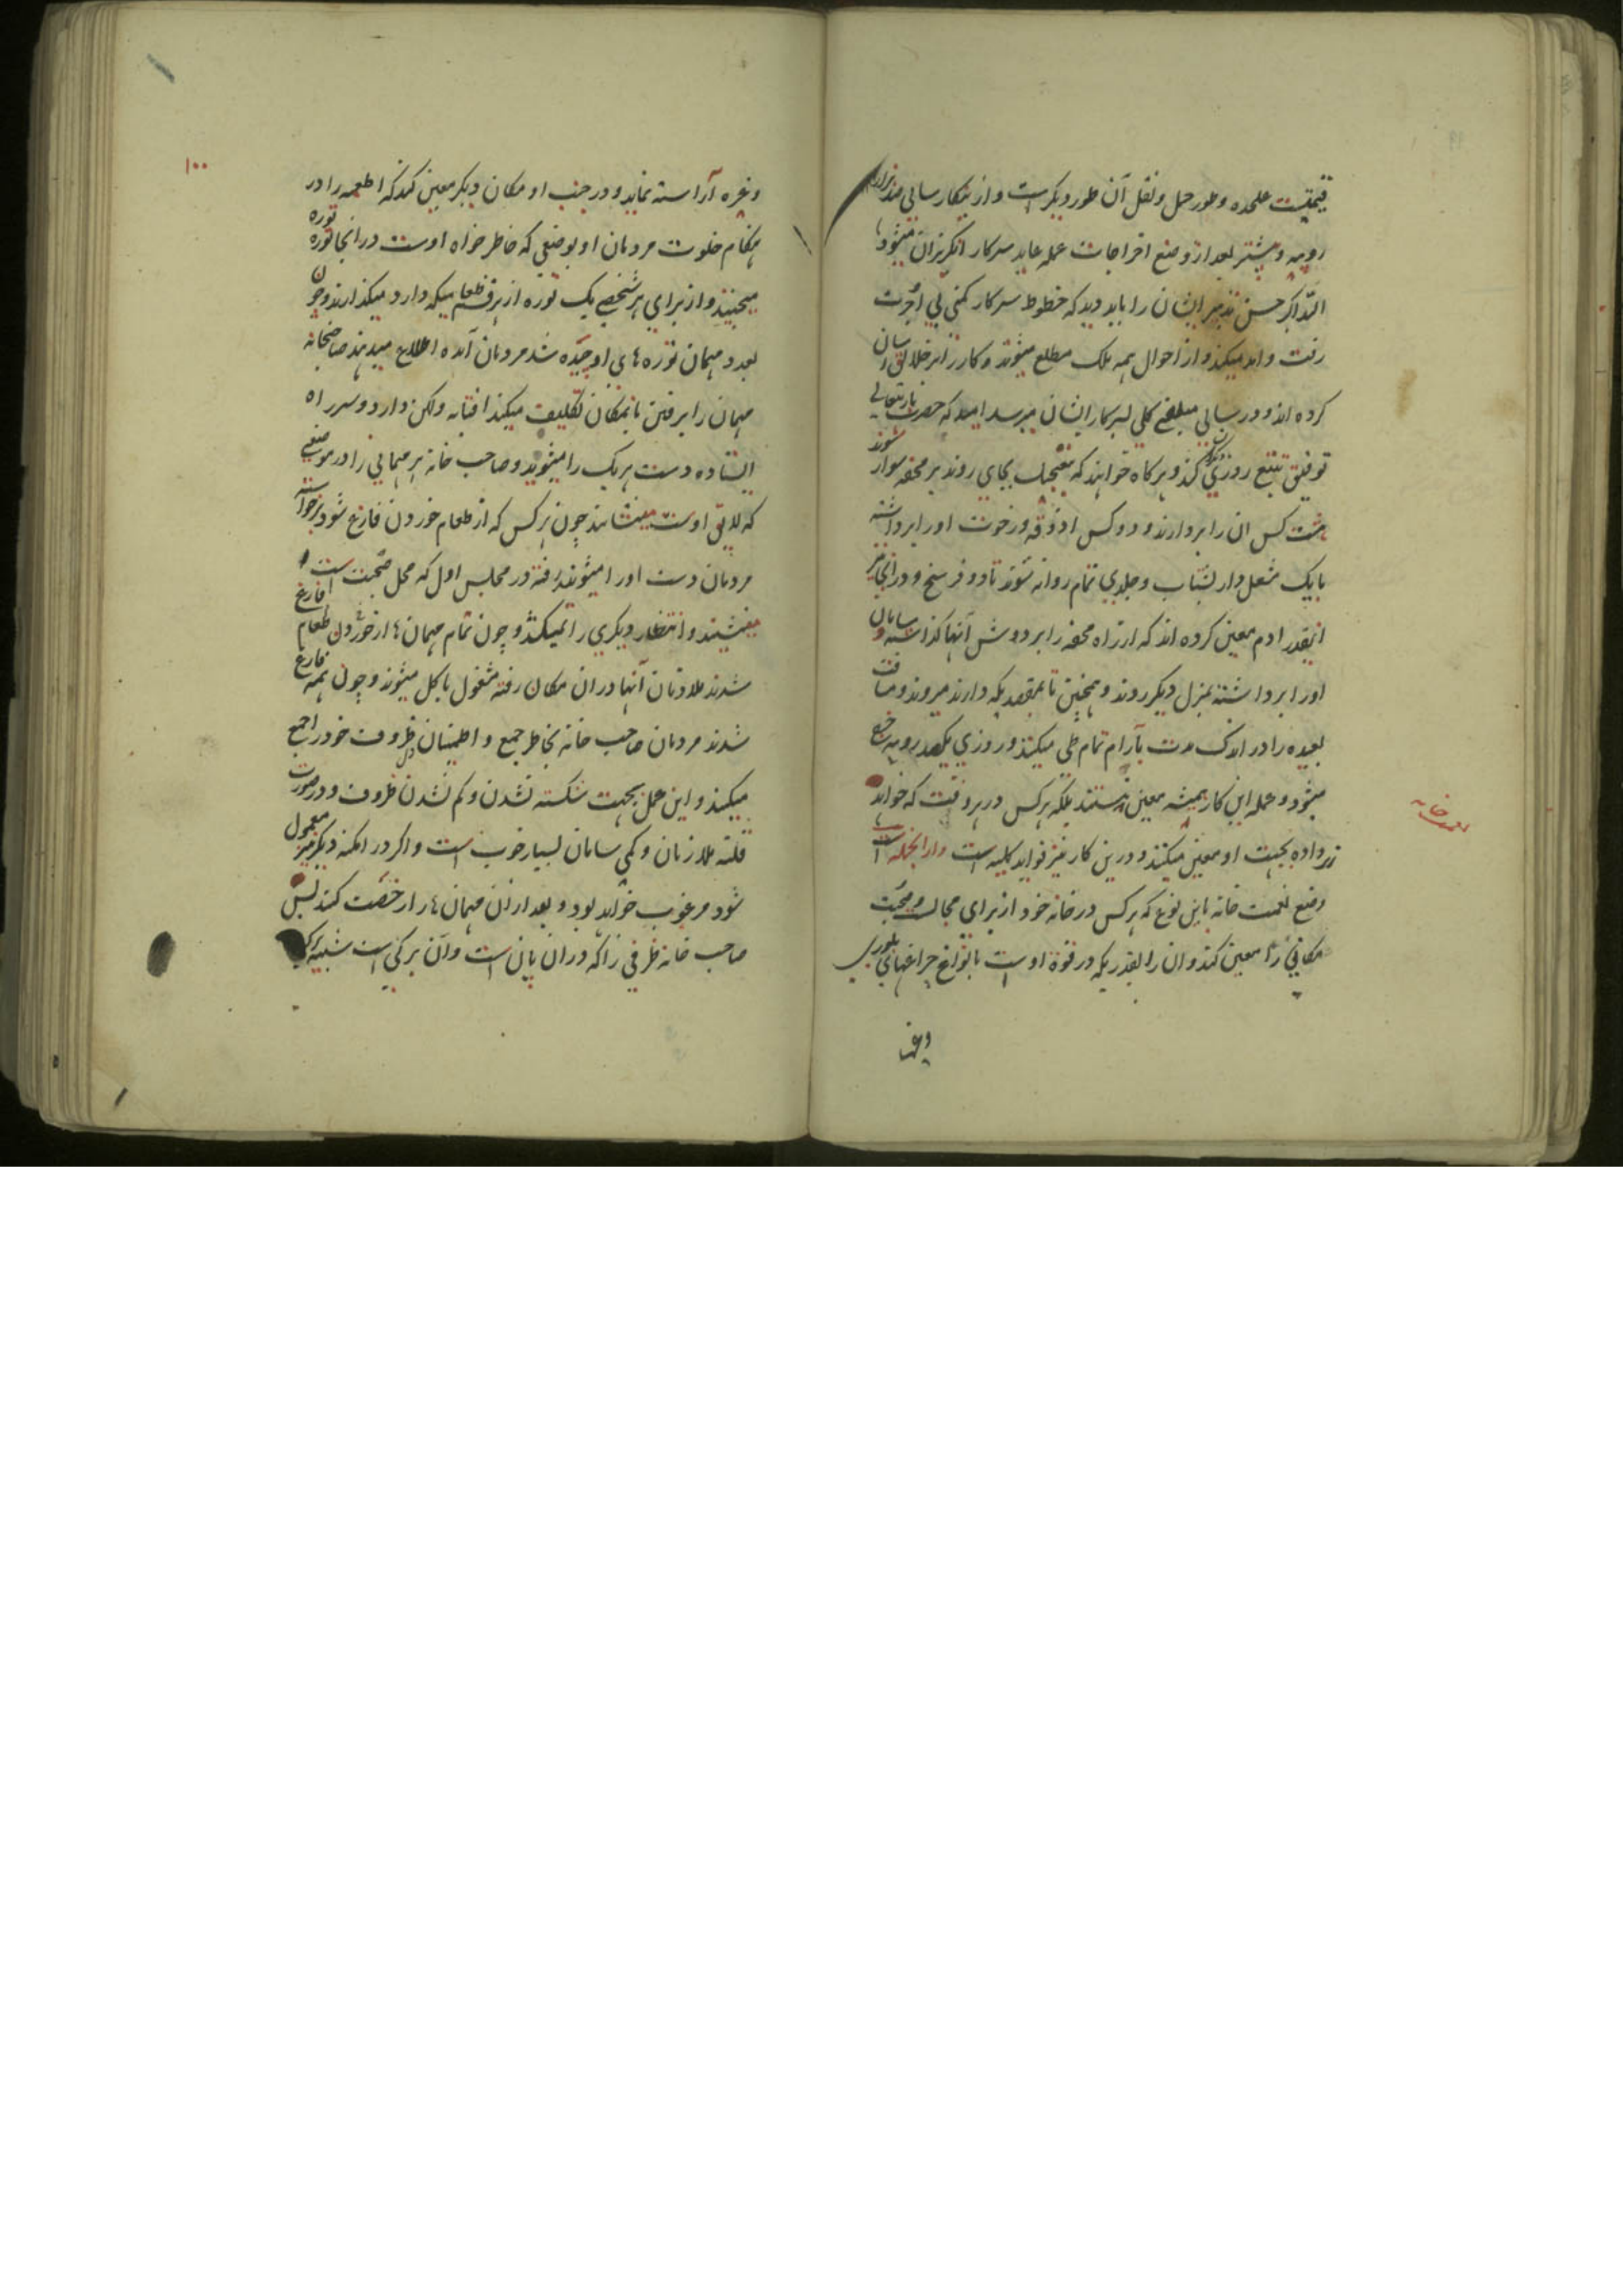 قیمتیست علحده و طور حمل و نقل آن طور دیگر است و ازینکار سالی
روپیه و بیشتر بعد از وضع اخراجات عمله عاید سرکار انگریزان میشود
الله اکبر حسن تدبیر ایشان را باید دید که خطوط سرکار کمپنی بی اجرت
رفت و امد میکند و از احوال همه ملک مطلع میشوند و کار زایر خلایق اسان
کرده اند و در سالی مبلغی کلی بسرکار ایشان میرسد امید که حضرت باریتعالی
توفیق تتبع روزی کند و هرکاه خواهند که بتعجیل بجای روند بر محفه سوار شوند
هشت کس ان را بردارند و دو کس اذوقه و رخوت اورا برداشته
با یک مشعل دار بشتاب و جلدی تمام روانه شوند تا دو فرسخ و در انجا نیز
اینقدر ادم معین کرده اند که از راه محفه را بر دوش آنها گذاشته و سامان
اورا برداشته بمنزل دیگر روند و همچنین تا بمقصدیکه دارند میروند و مسافت
بعیده را در اندک مدت بآرام تمام طی میکنند و روزی یکصد روپیه خرج
میشود و عمله این کار همیشه معین نیستند بلکه هرکس در هر وقت که خواهد
زر داده بجهت او معین میکنند و درین کار نیز فواید کلیه است و از انجمله است
وضع نعمت خانه باین نوع که هرکس در خانه خود از برای مجالست و صحبت
مکانی را معین کند و ان را بقدریکه در قوة اوست بانواع چراغهای بلوری
وغیره
نعمت خانه
۱۰۰
وغیره آراسته نماید و در جنب او مکان دیگر معین کند که اطعمه را در
هنگام خلوت مردمان او بوضعی که خاطر خواه اوست در انجا توره توره
میچینند و از برای هر شخصی یک توره از هر قسم طعامیکه دارد میگذارند و چون
بعدد مهمان توره های او چیده شد مردمان آمده اطلاع میدهند صاحبخانه
مهمان را برفتن بانمکان تکلیف میکند افتابه و لکن دار دو سر راه
ایستاده دست هر یک را میشویند و صاحب خانه هر مهمانی را در موضعی
که لایق اوست مینشاند چون هرکس که از طعام خوردن فارغ شود برخواسته
مردمان دست اورا میشویند رفته در مجلس اول که محل صحبت است
مینشیند و انتظار دیگری را نمیکشد و چون تمام مهمان ها از خوردن طعام فارغ
شدند ملازمان آنها در ان مکان رفته مشغول باکل میشوند و چون همه فارغ
شدند مردمان صاحب خانه بخاطر جمع و اطمینان دل ظروف خود را جمع
میکنند و این عمل بجهت شکسته نشدن و کم نشدن ظروف و در صورت
قلت ملازمان و کمی سامان بسیار خوب است و اگر در امکنه دیگر نیز معمول
شود مرغوب خواهد بود و بعد از ان مهمان ها را رخصت کنند پس
صاحب خانه ظرفی را که در ان پان است و آن برکی است شبیه